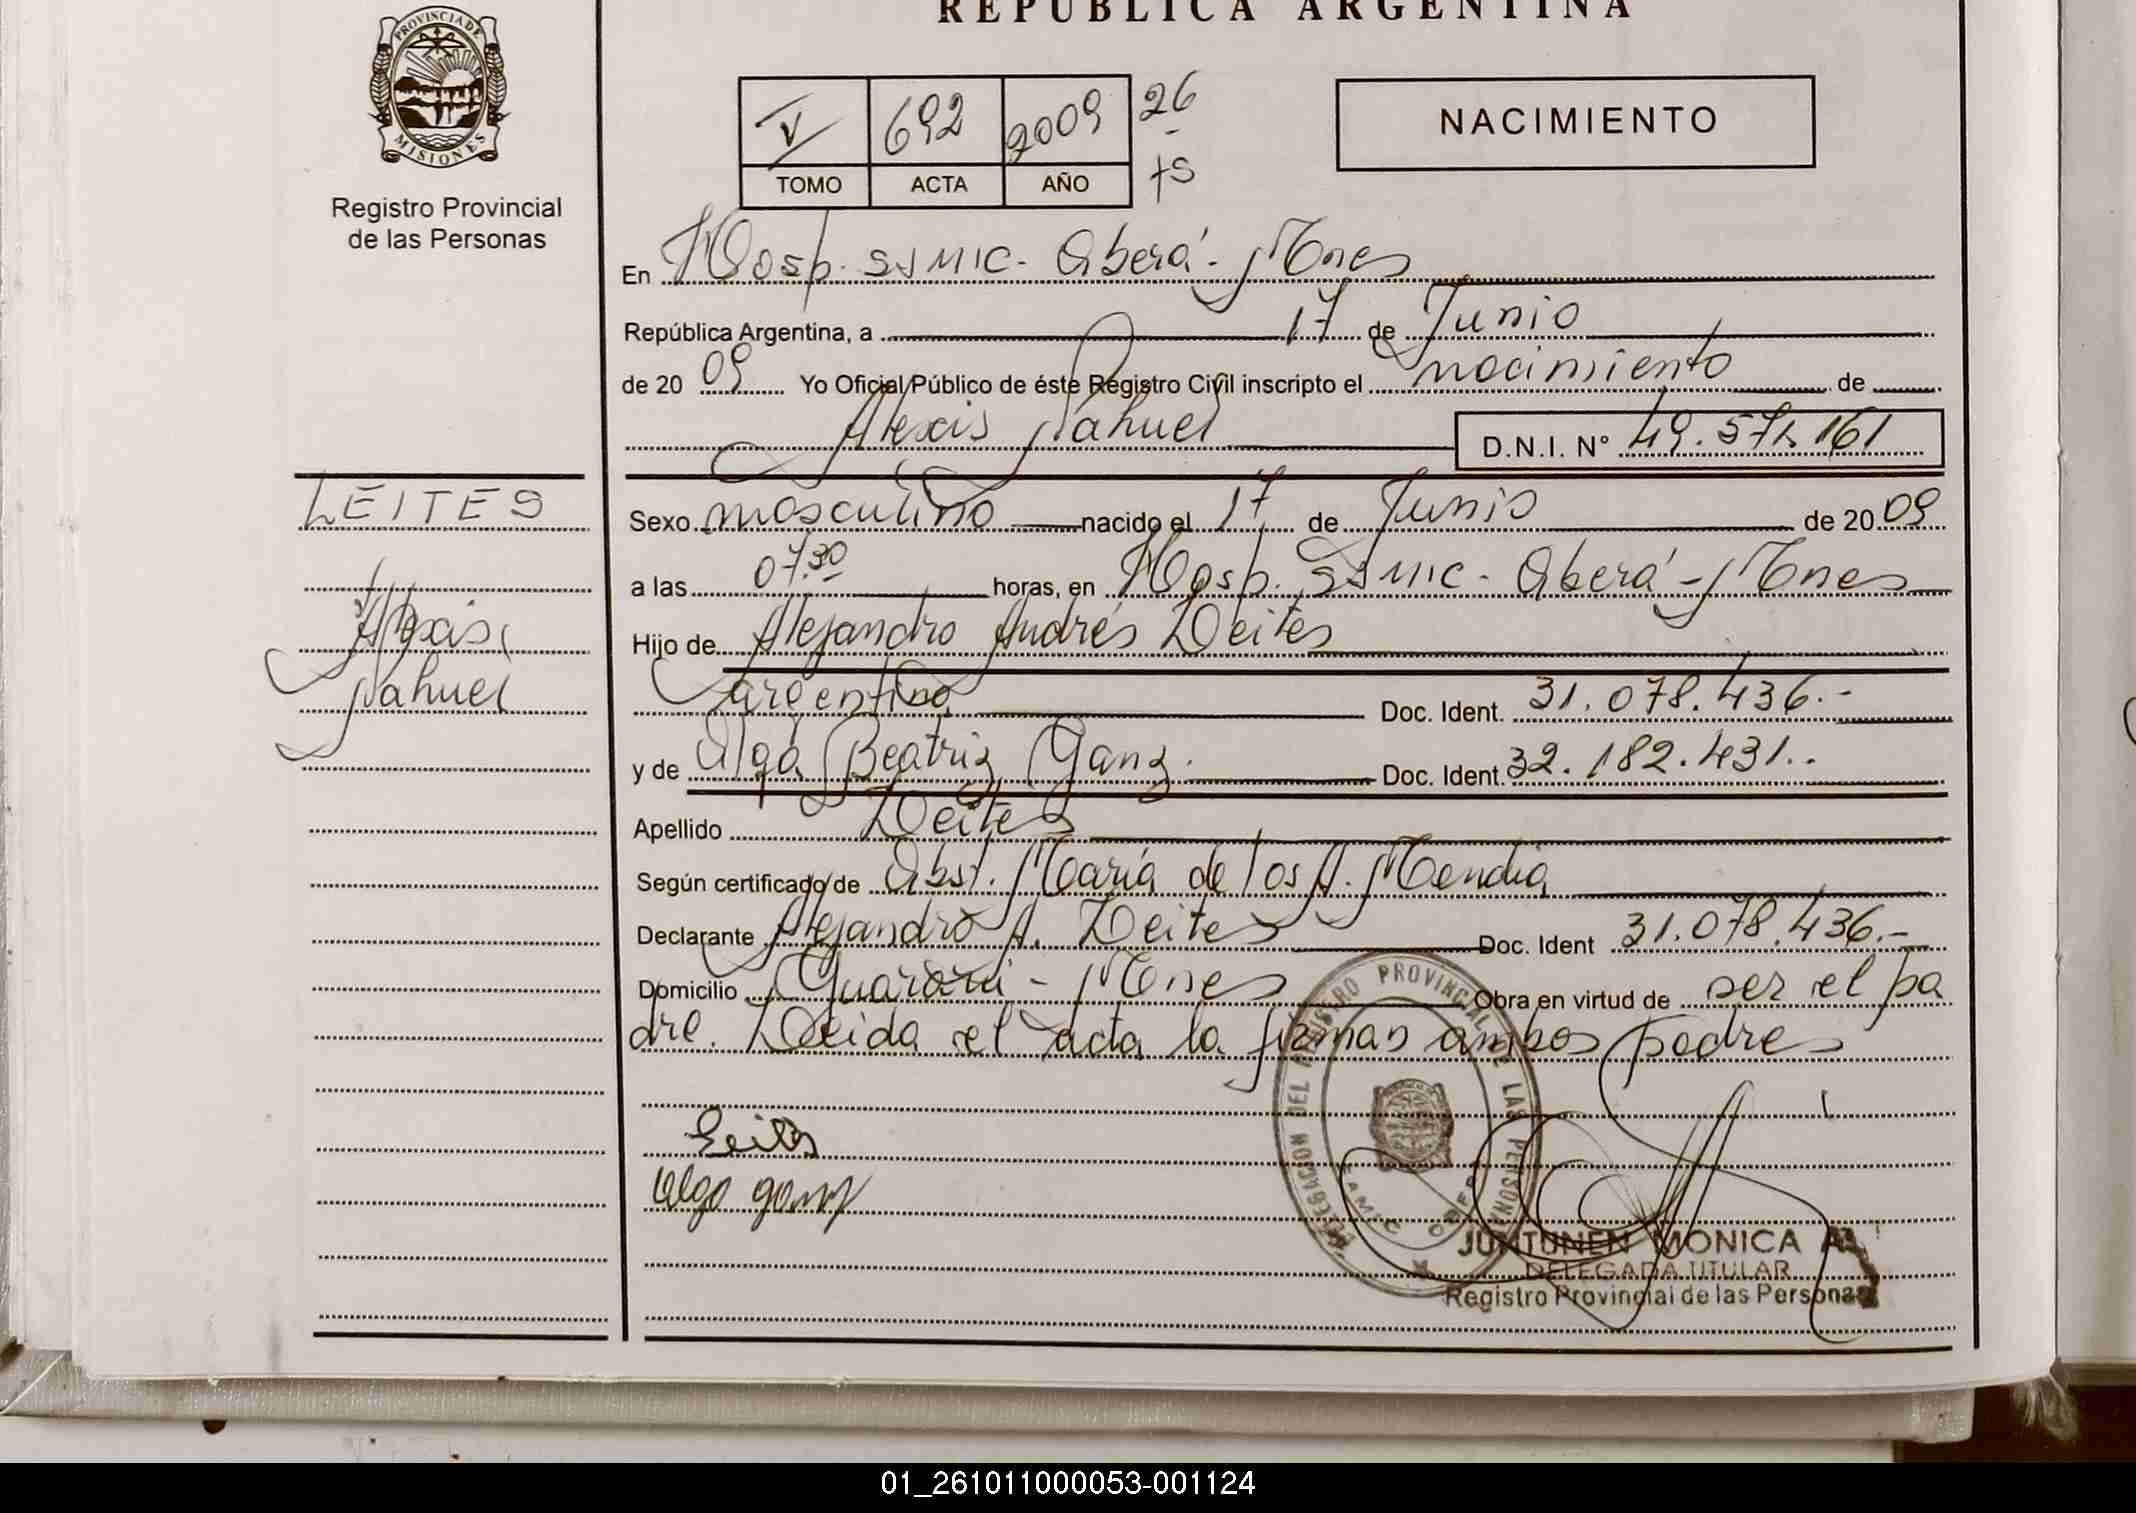 REPUBLICA ARGENTINA
PROVINCIA DE
MISIONES
Registro Provincial
de las Personas
V 692 2009 26
TOMO ACTA AÑO
NACIMIENTO
En Hosp. SAMIC - Oberá - Mnes
República Argentina, a 17 de Junio
de 2009 Yo Oficial Público de éste Registro Civil inscripto el nacimiento de
Alexis Nahuel D.N.I. Nº 49.571.161
LEITES
Alexis
Nahuel
Sexo masculino nacido el 17 de Junio de 2009
a las 07.30 horas, en Hosp. SAMIC - Oberá - Mnes
Hijo de Alejandro Andrés Leites
argentino Doc. Ident. 31.078.436.-
y de Olga Beatriz Ganz. Doc. Ident. 32.182.431..
Apellido Leites
Según certificado de Obst. María de los A. Mendia
Declarante Alejandro A. Leites Doc. Ident 31.078.436.-
Domicilio Guaraní - Mnes Obra en virtud de ser el pa
dre. Leida el acta la firman ambos padres
Leites
Olga ganz
DELEGACION DEL REGISTRO PROVINCIAL DE LAS PERSONAS
SAMIC OBERA
JUNTUNEN MONICA A.
DELEGADA TITULAR
Registro Provincial de las Personas
01_261011000053-001124